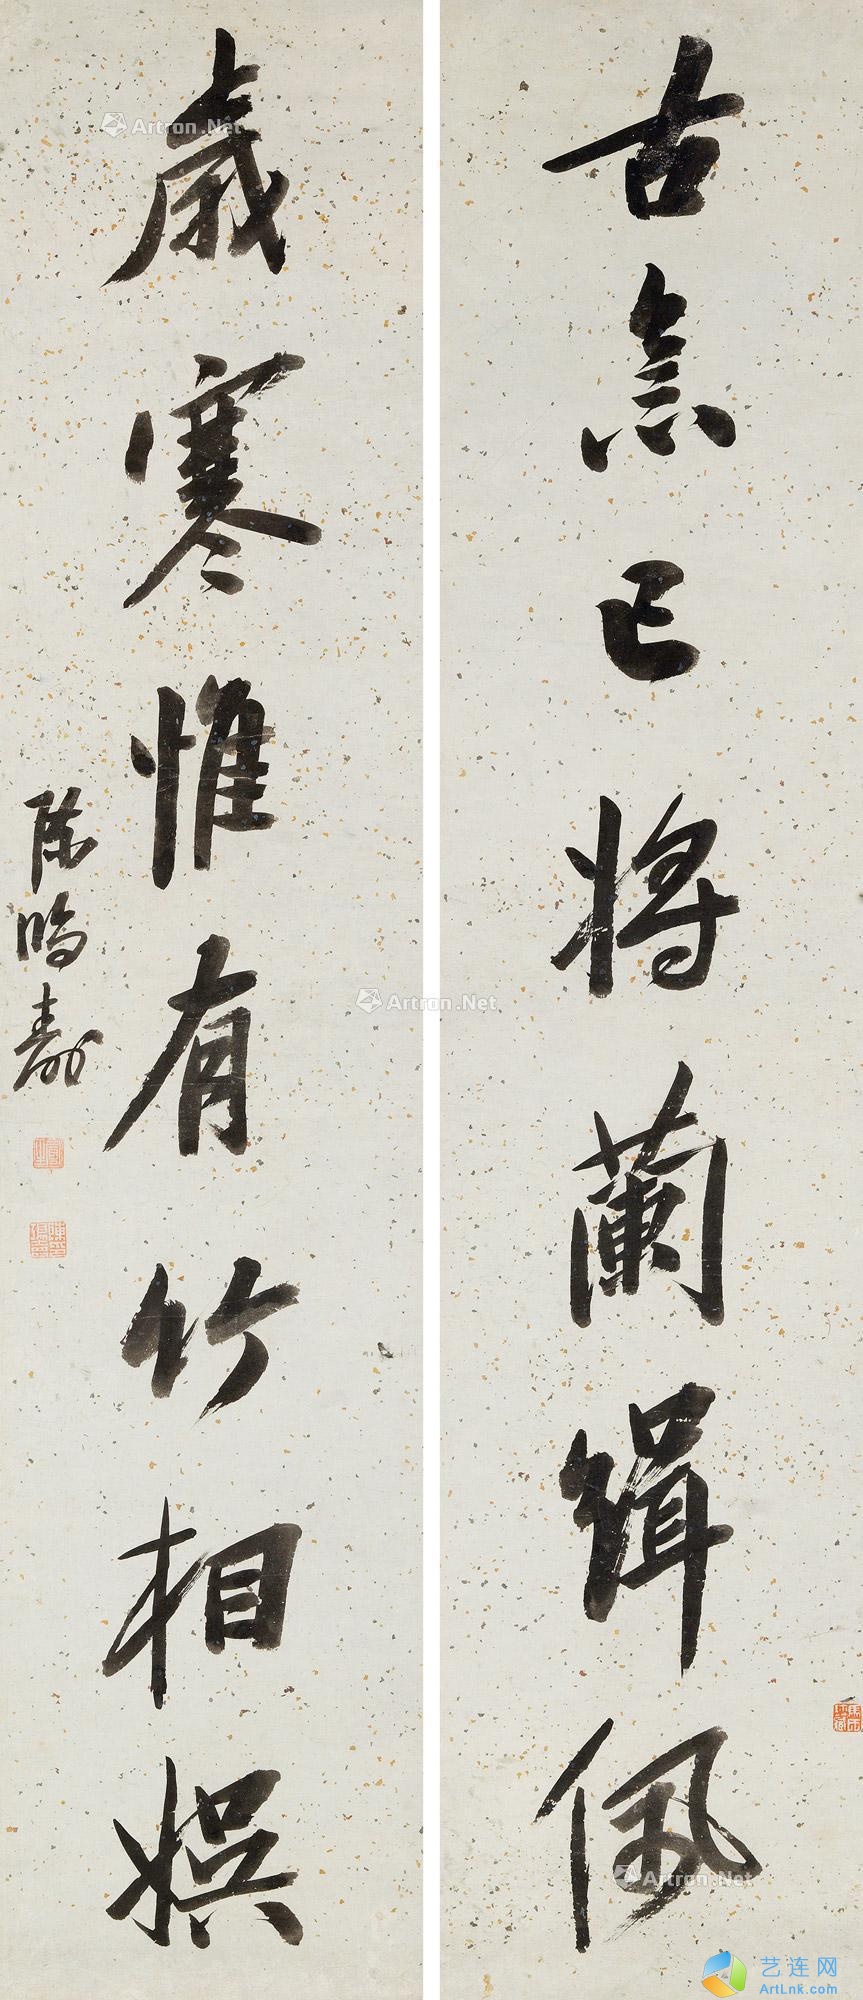 古意已将蘭緝佩
歲寒惟有竹相娱
陳鳴壽
Artron.Net
Artron.Net
Artron.Net
艺连网
ArtLnk.com